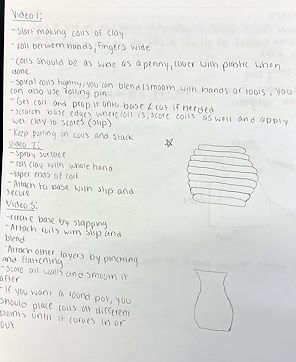 Video 1:
- Start making coils of clay
- roll between hands, fingers wide
- coils should be as wide as a penny, cover with plastic when
done
- spiral coils tightly, you can blend/smooth with hands or tools, you
can also use rolling pin
- Get coil and prop it onto base & cut if needed
- scratch base edges where coil is, score coils as well and apply
wet clay to scores (slip)
- keep putting on coils and stack
Video 2:
- Spray surface
- roll clay with whole hand
- taper ends of coil
- Attach to base with slip and
secure
Video 3:
- create base by slapping
- Attach coils with slip and
blend
- Attach other layers by pinching
and flattening
- Score all walls and smooth it
after
- If you want a round pot, you
should place coils at different
points until it curves in or
out